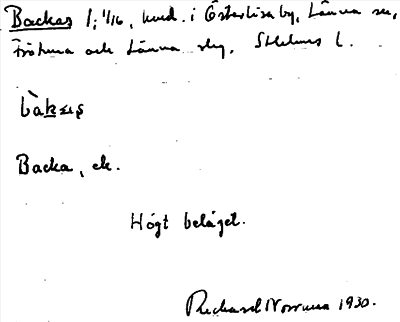 Backas 1; 1/16, hmd. i Österlisa by, Länna sn,
Frötuna och Länna skg, Sthlms l.
Backa, ek.
Högt beläget.
Richard Norrman 1930.